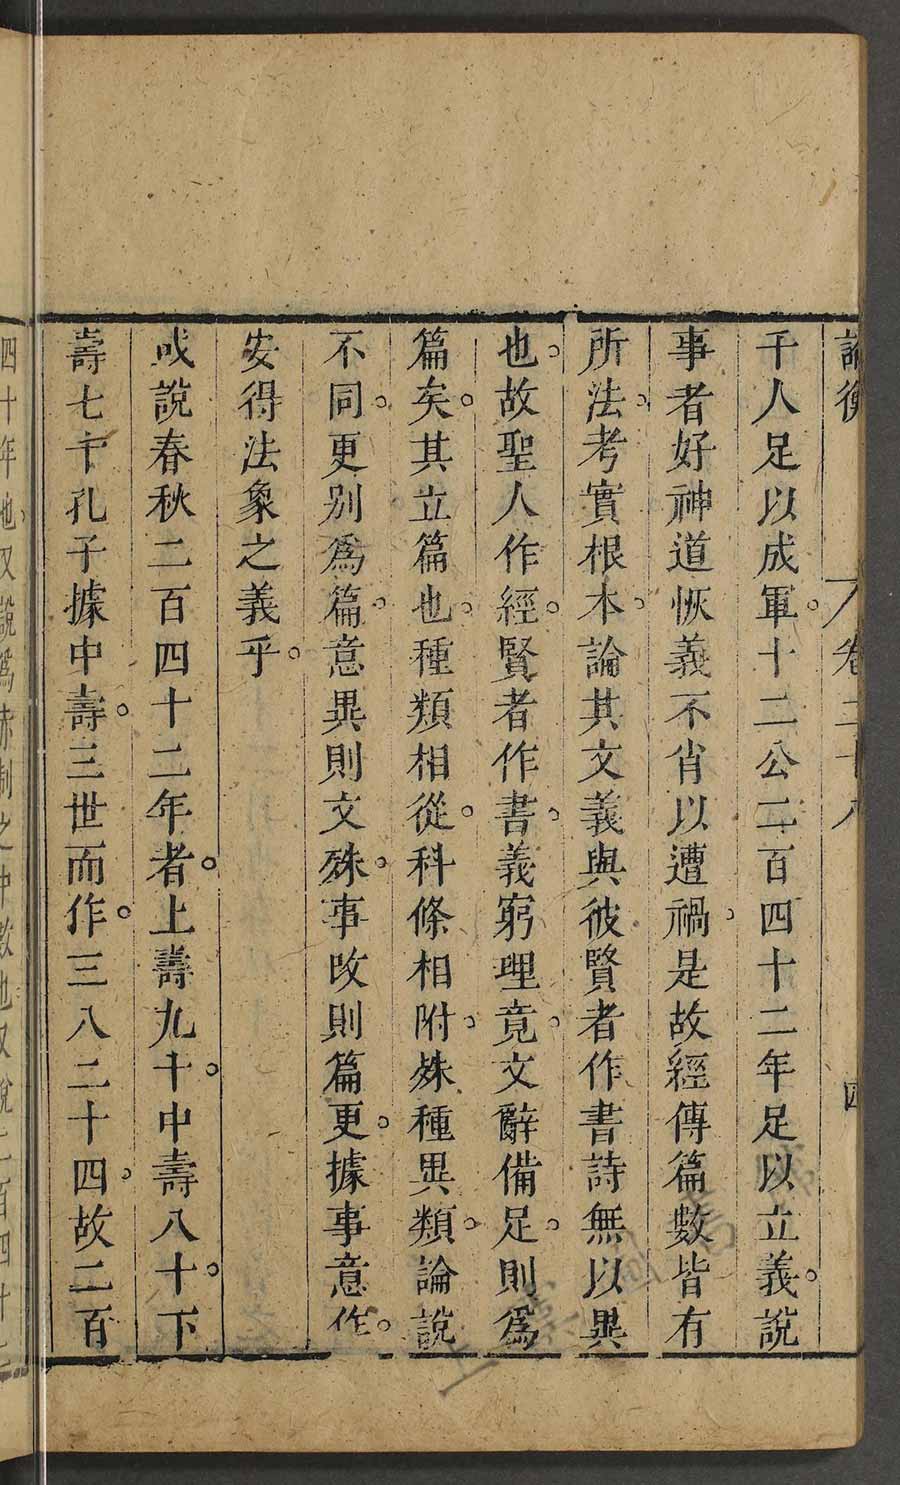 論衡 卷二十八 四
千人足以成軍。十二公二百四十二年足以立義。說
事者好神道恢義不肖以遭禍。是故經傳篇數皆有
所法。考實根本。論其文義與彼賢者作書詩無以異
也。故聖人作經。賢者作書。義窮理竟。文辭備足。則爲
篇矣。其立篇也。種類相從。科條相附。殊種異類。論說
不同。更别爲篇。意異則文殊。事改則篇更。據事意作。
安得法象之義乎。
或說春秋二百四十二年者。上壽九十。中壽八十。下
壽七十孔子據中壽。三世而作。三八二十四。故二百
四十年也。又說爲赤制之中數也又說二百四十二